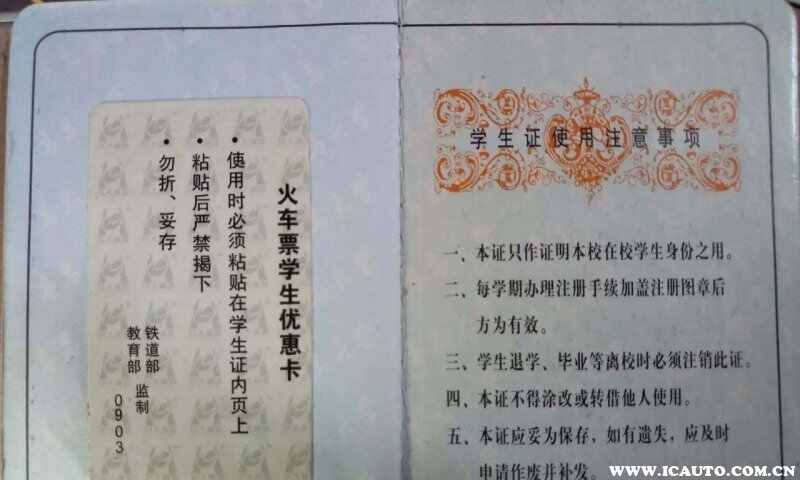 火车票学生优惠卡
• 使用时必须粘贴在学生证内页上
• 粘贴后严禁揭下
• 勿折、妥存
铁道部
教育部 监制
0903
学生证使用注意事项
一、本证只作证明本校在校学生身份之用。
二、每学期办理注册手续加盖注册图章后
方为有效。
三、学生退学、毕业等离校时必须注销此证。
四、本证不得涂改或转借他人使用。
五、本证应妥为保存，如有遗失，应及时
申请作废并补发。
WWW.ICAUTO.COM.CN